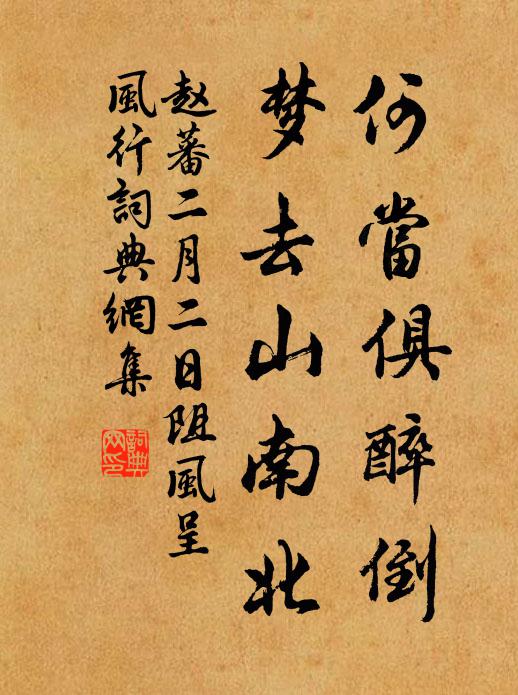 何當俱醉倒
梦去山南北
赵蕃二月二日阻風呈
風行詞典網集
詞典网印